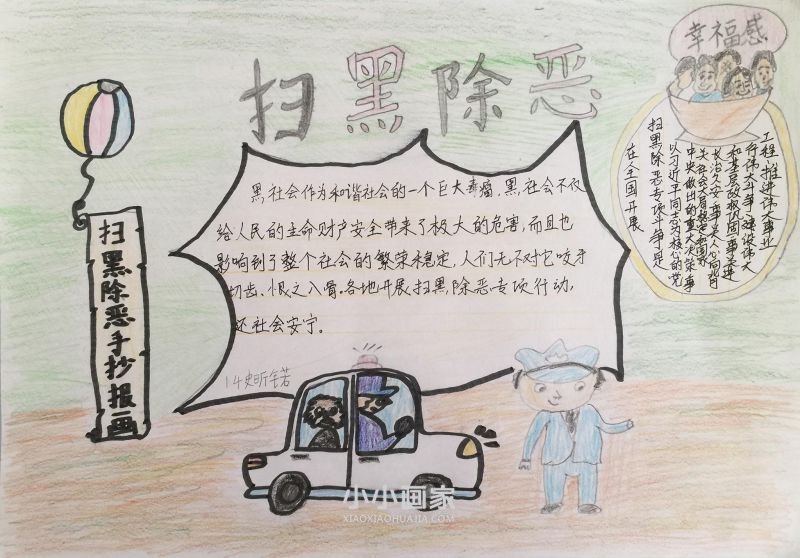 扫黑除恶
幸福感
黑社会作为和谐社会的一个巨大毒瘤,黑社会不仅
给人民的生命财产安全带来了极大的危害,而且也
影响到了整个社会的繁荣稳定,人们无不对它咬牙
切齿、恨之入骨。各地开展扫黑除恶专项行动,
还社会安宁。
14史昕
扫黑除恶手抄报画
在全国开展
扫黑除恶专项斗争是
以习近平同志为核心的党
中央做出的重大决策事
关社会大局稳定和国家
长治久安事关人心向背
和基层政权巩固事关进
行伟大斗争、建设伟大
工程、推进伟大事业
小小画家
XIAOXIAOHUAJIA.COM